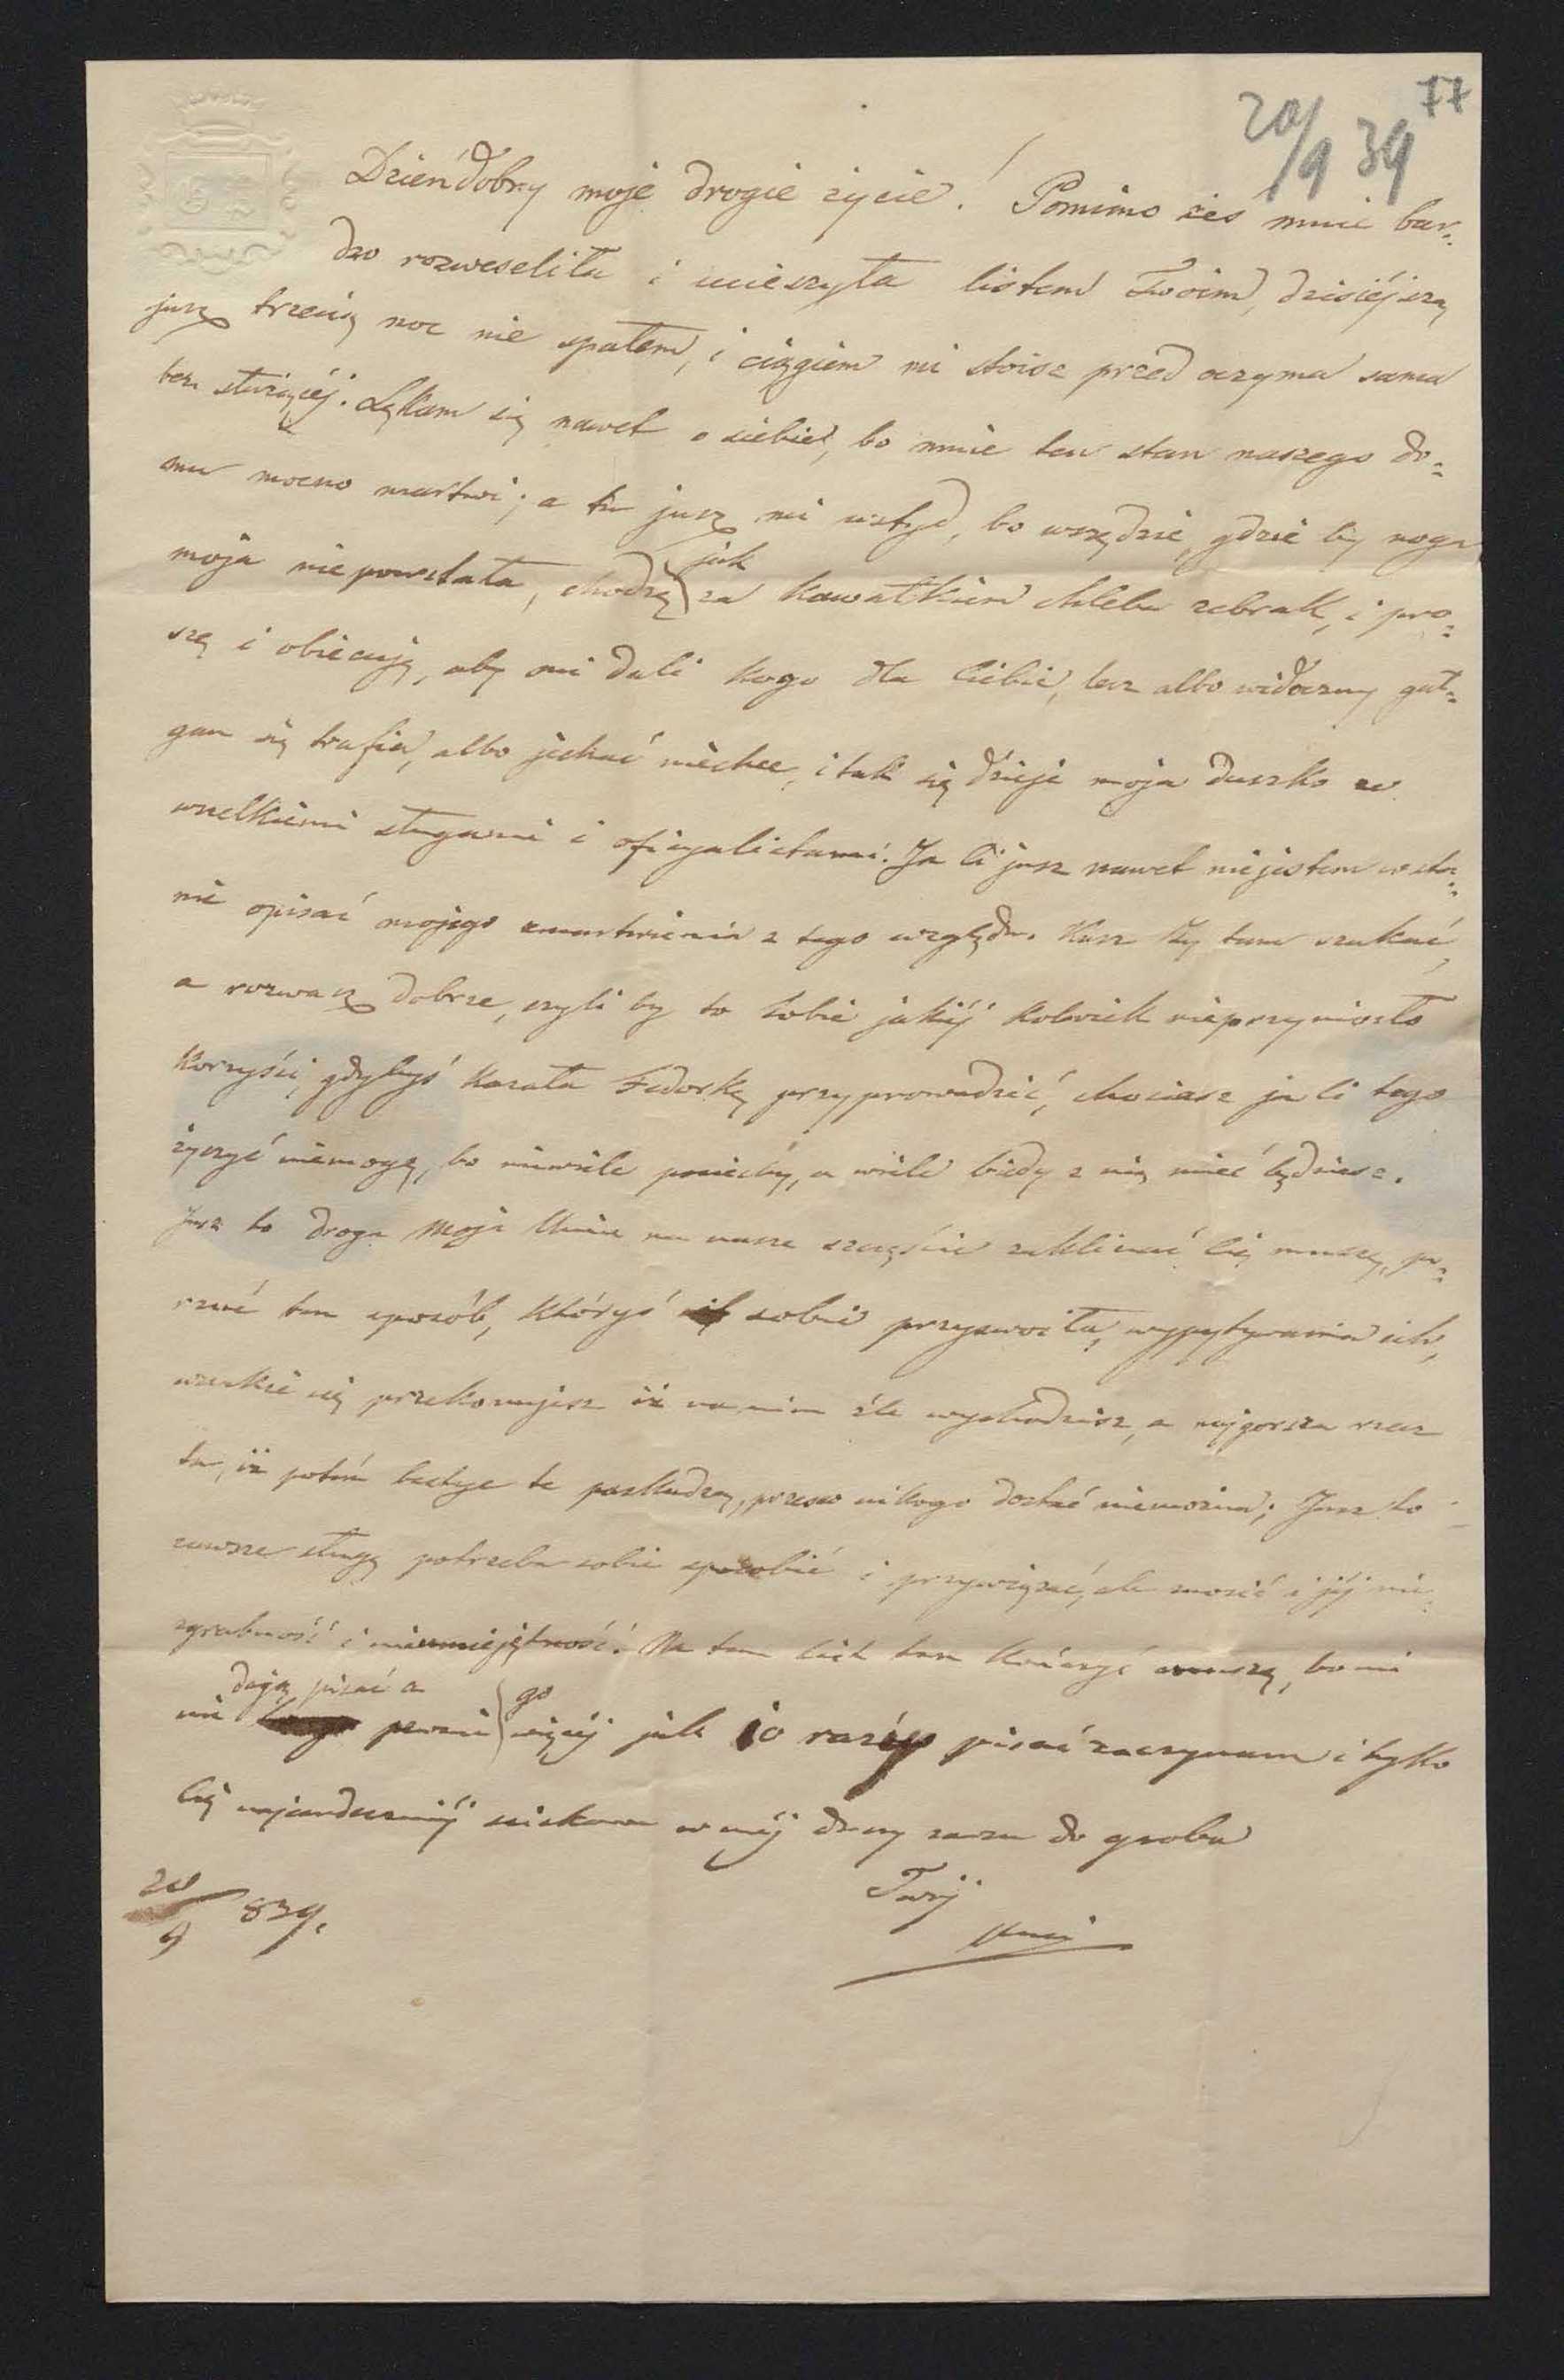 77
20/9 39
Dzieńdobry moje drogie życie! Pomimo żeś mnie bar=
dzo rozweseliła i ucieszyła listem Twoim, dzisiéjszą
jusz trzecią noc nie spałem, i ciągiem mi stoisz przed oczyma sama
bez służącéj. Lękam się nawet o ciebie, bo mnie ten stan naszego do=
mu mocno martwi; a tu jusz mi wstyd, bo wszędzie, gdzie by noga
moja niepowstała, chodzę jak za kawałkiem chleba żebrak, i pro=
szę i obiecuję, aby mi dali kogo dla Ciebie, lecz albo widoczny gał=
gan się trafia, albo jechać niechce, i tak się dzieje moja duszko ze
wszelkiemi sługami i oficyalistami. Ja Ci jusz nawet niejestem w sta=
nie opisać mojego zmartwienia z tego względu. Każ Ty tam szukać,
a rozważ dobrze, czyli by to Tobie jakiéj kolwiek nieprzyniosło
korzyści, gdybyś kazała Fedorkę przyprowadzić, chociasz ja Ci tego
życzyć niemogę, bo niewiele pociechy, a wiele biédy z nią mieć będziesz.
Jusz to droga moja na nasze szczęście zaklinać Cię muszę, po=
rzuć ten sposób, któryś sobie przyswoiła, wypytywania ich,
wszakże się przekonujesz iż na nim źle wychodzisz, a najgorsza rzecz
ta, iż potém bestye te paskudzą, przezco nikogo dostać niemożna; Jusz to
zawsze sługę potrzeba sobie sposobić i przywiązać, ale znosić i jéj nie=
zgrabność i nieumiejętność. Na tem list ten kończyć muszę, bo mi
nie dają pisać a pewnie go więcéj jak 10 razy pisać zaczynam i tylko
Cię najserdeczniéj ściskam w méj duszy zawsze do grobu
Twój
20/9 839.